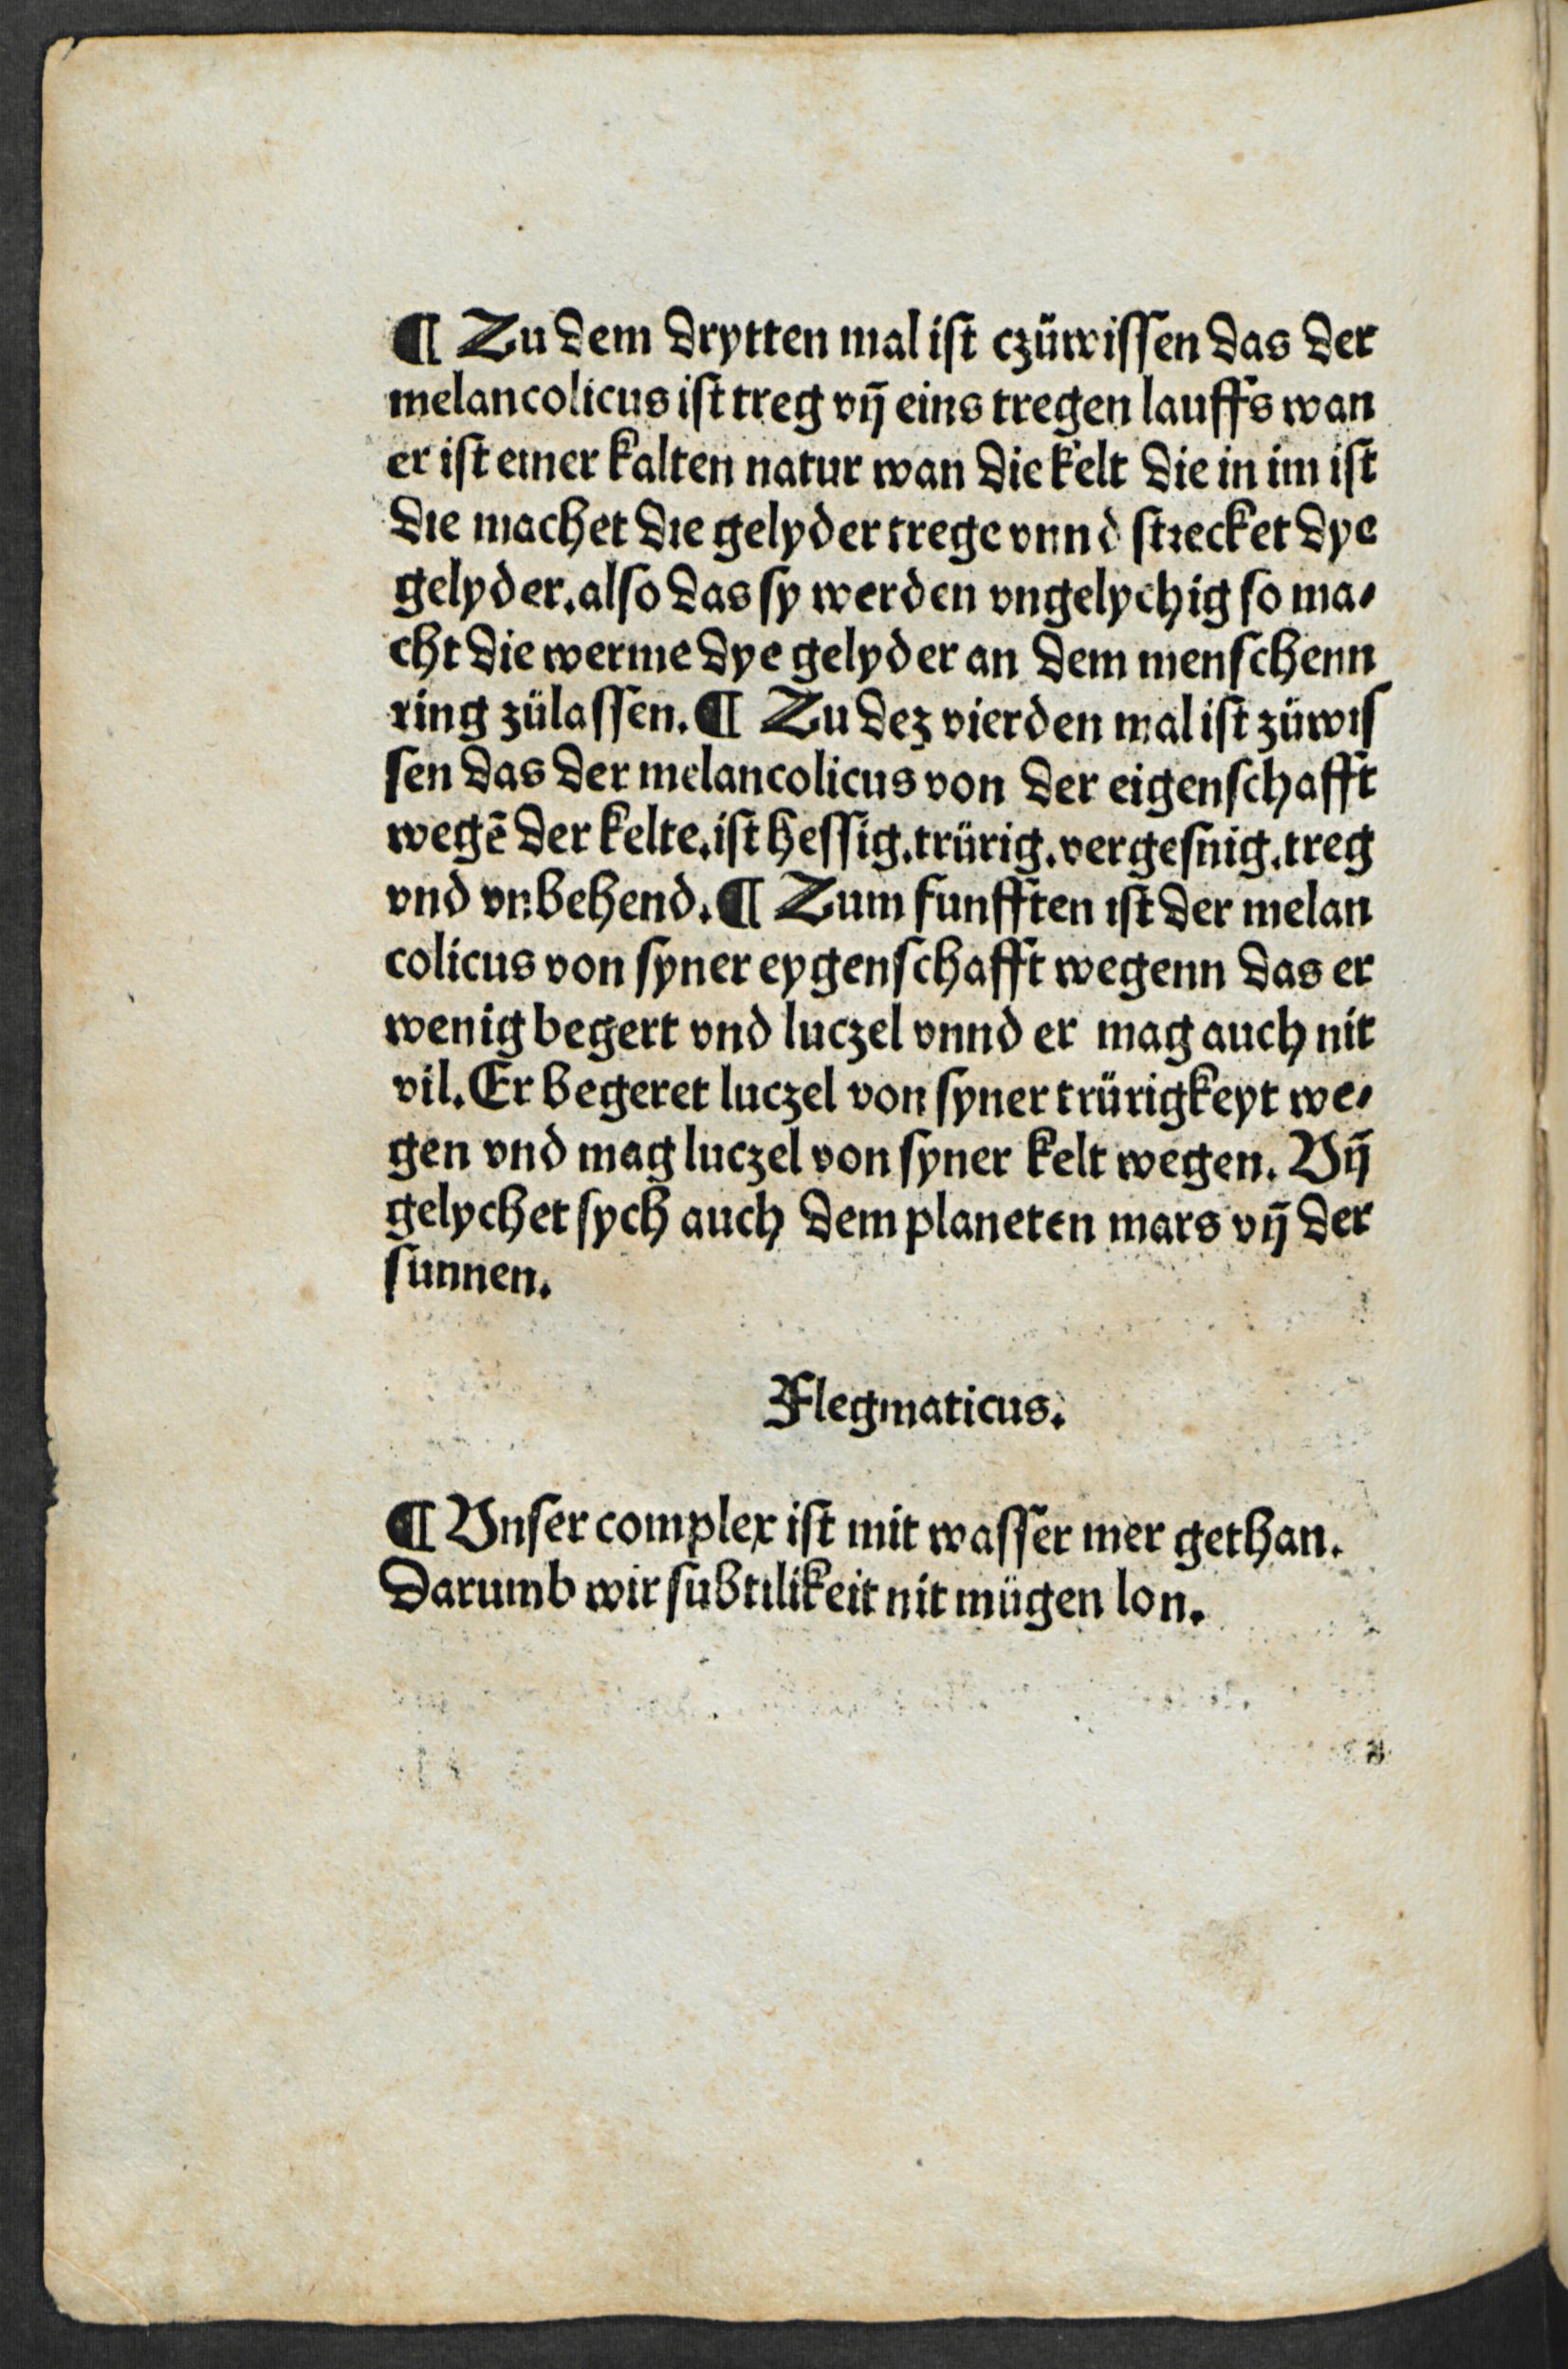 ¶ Zu dem drytten mal ist czüwissen das der
melancolicus ist treg vñ eins tregen lauffs wan
er ist einer kalten natur wan die kelt die in im ist
die machet die gelyder trege vnnd strecket dye
gelyder. also das sy werden vngelychig so ma-
cht die werme dye gelyder an dem menschenn
ring zülassen. ¶ Zu dez vierden mal ist züwis
sen das der melancolicus von der eigenschafft
wegē der kelte. ist hessig. trürig. vergesnig. treg
vnd vnbehend. ¶ Zum funfften ist der melan
colicus von syner eygenschafft wegenn das er
wenig begert vnd luczel vnnd er mag auch nit
vil. Er begeret luczel von syner trürigkeyt we-
gen vnd mag luczel von syner kelt wegen. Vñ
gelychet sych auch dem planeten mars vñ der
sunnen.
Flegmaticus.
¶ Vnser complex ist mit wasser mer gethan.
Darumb wir subtilikeit nit mügen lon.